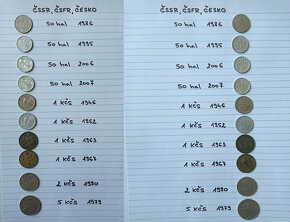 ČSSR, ČSFR, ČESKO
50 hal 1986
50 hal 1995
50 hal 2006
50 hal 2007
1 Kčs 1946
1 Kčs 1952
1 Kčs 1963
1 Kčs 1967
2 Kčs 1980
5 Kčs 1979
ČSSR, ČSFR, ČESKO
50 hal 1986
50 hal 1995
50 hal 2006
50 hal 2007
1 Kčs 1946
1 Kčs 1952
1 Kčs 1963
1 Kčs 1967
2 Kčs 1980
5 Kčs 1979